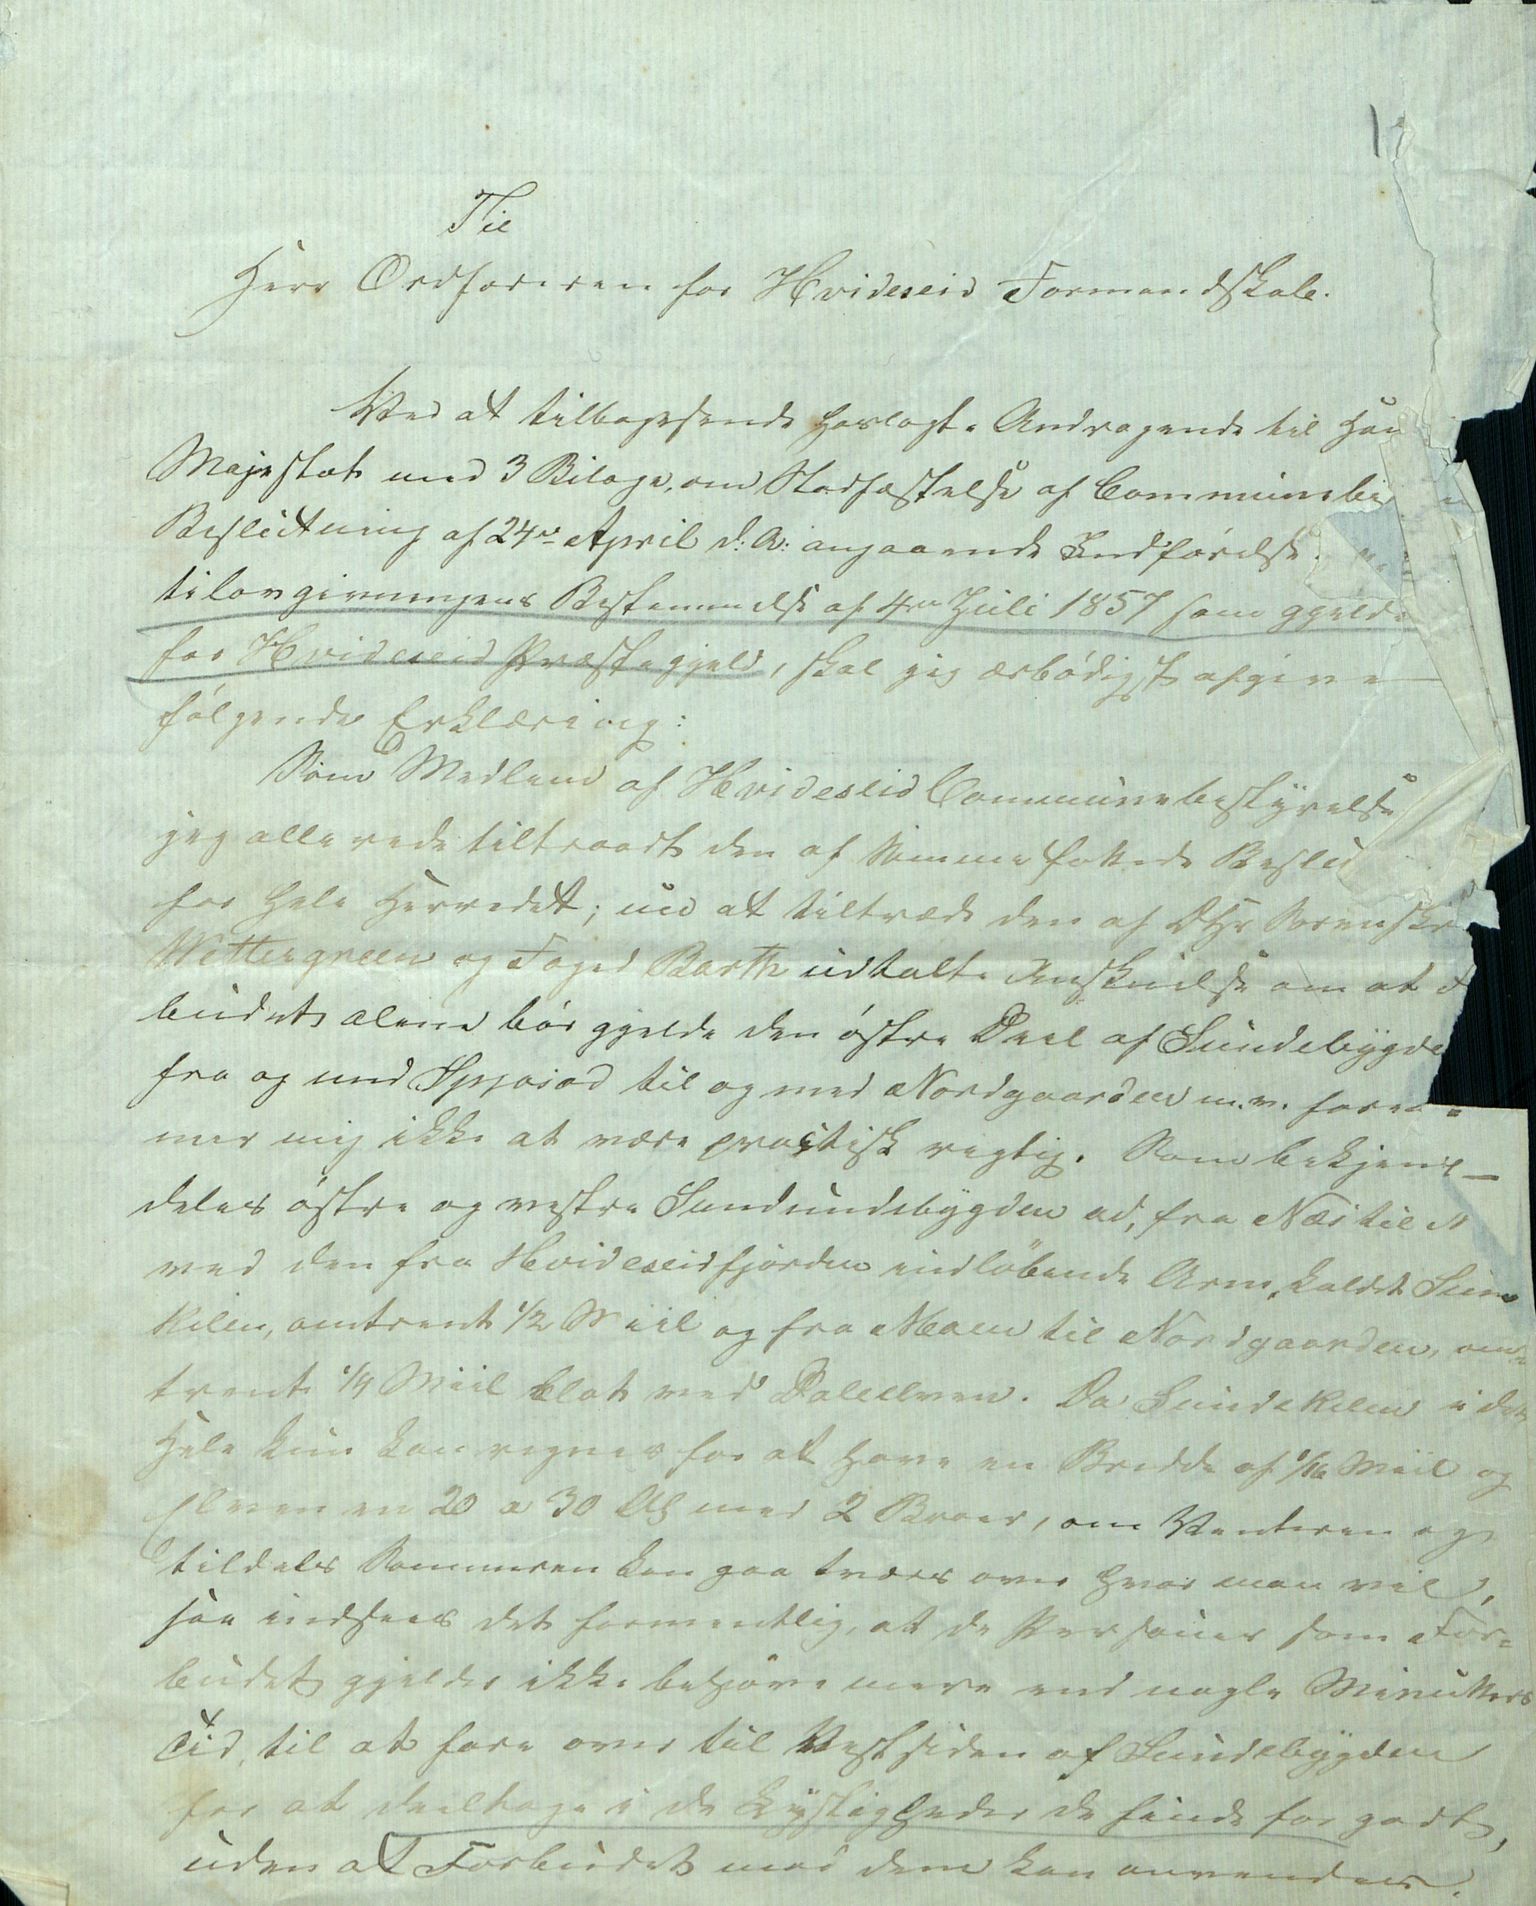 Til
Herr Ordføreren for Hvideseid Formandskab.
Ved at tilbagesende hoslagte Andragende til Han
Majestæt med 3 Bilage, om Stadfæstelse af Communebe
Beslutning af 24de April d: A: angaaende Indførelse
tilovgivningens Bestemmelse af 4de Juli 1857 som gjelde
for Hvideseid Præstegjeld, skal jeg ærbødigst afgive
følgende Erklæring:
Som Medlem af Hvideseid Communebestyrelse
jeg allerede tiltraadt den af Samme fattede Beslu
for hele Herredet; nu at tiltræde den af DHr Sorenskr
Wettergreen og Foged Barth udtalte Anskuelse om at F
budet alene bør gjelde den østre Deel af Sundebygde
fra og med Spjosod til og med Nordgaarden m.v. forek
mer mig ikke at være practisk rigtig. Som bekjendt
deles østre og vestre Sundundebygden ad, fra Næs til M
ved den fra Hvideseidfjorden indløbende Arm, kaldet Sun
kilen, omtrent 1/2 Miil og fra Moen til Nordgaarden, om=
trent 1/4 Miil blot ved Dalelven. Da Sundekilen i det
Hele kun kan regnes for at have en Bredde af 1/16 Miil og
Elven en 20 a 30 Al med 2 Broer, om Vinteren og
tildels Sommeren kan gaa tværs over hvor man vil,
saa indsees det formentlig, at de Personer som For=
budet gjelder ikke behøve mere end nogle Minutters
Tid, til at fare over til Vestsiden af Sundebygden
for at deeltage i de Lystigheder de finde for godt,
uden at Forbudet mod dem kan anvendes.